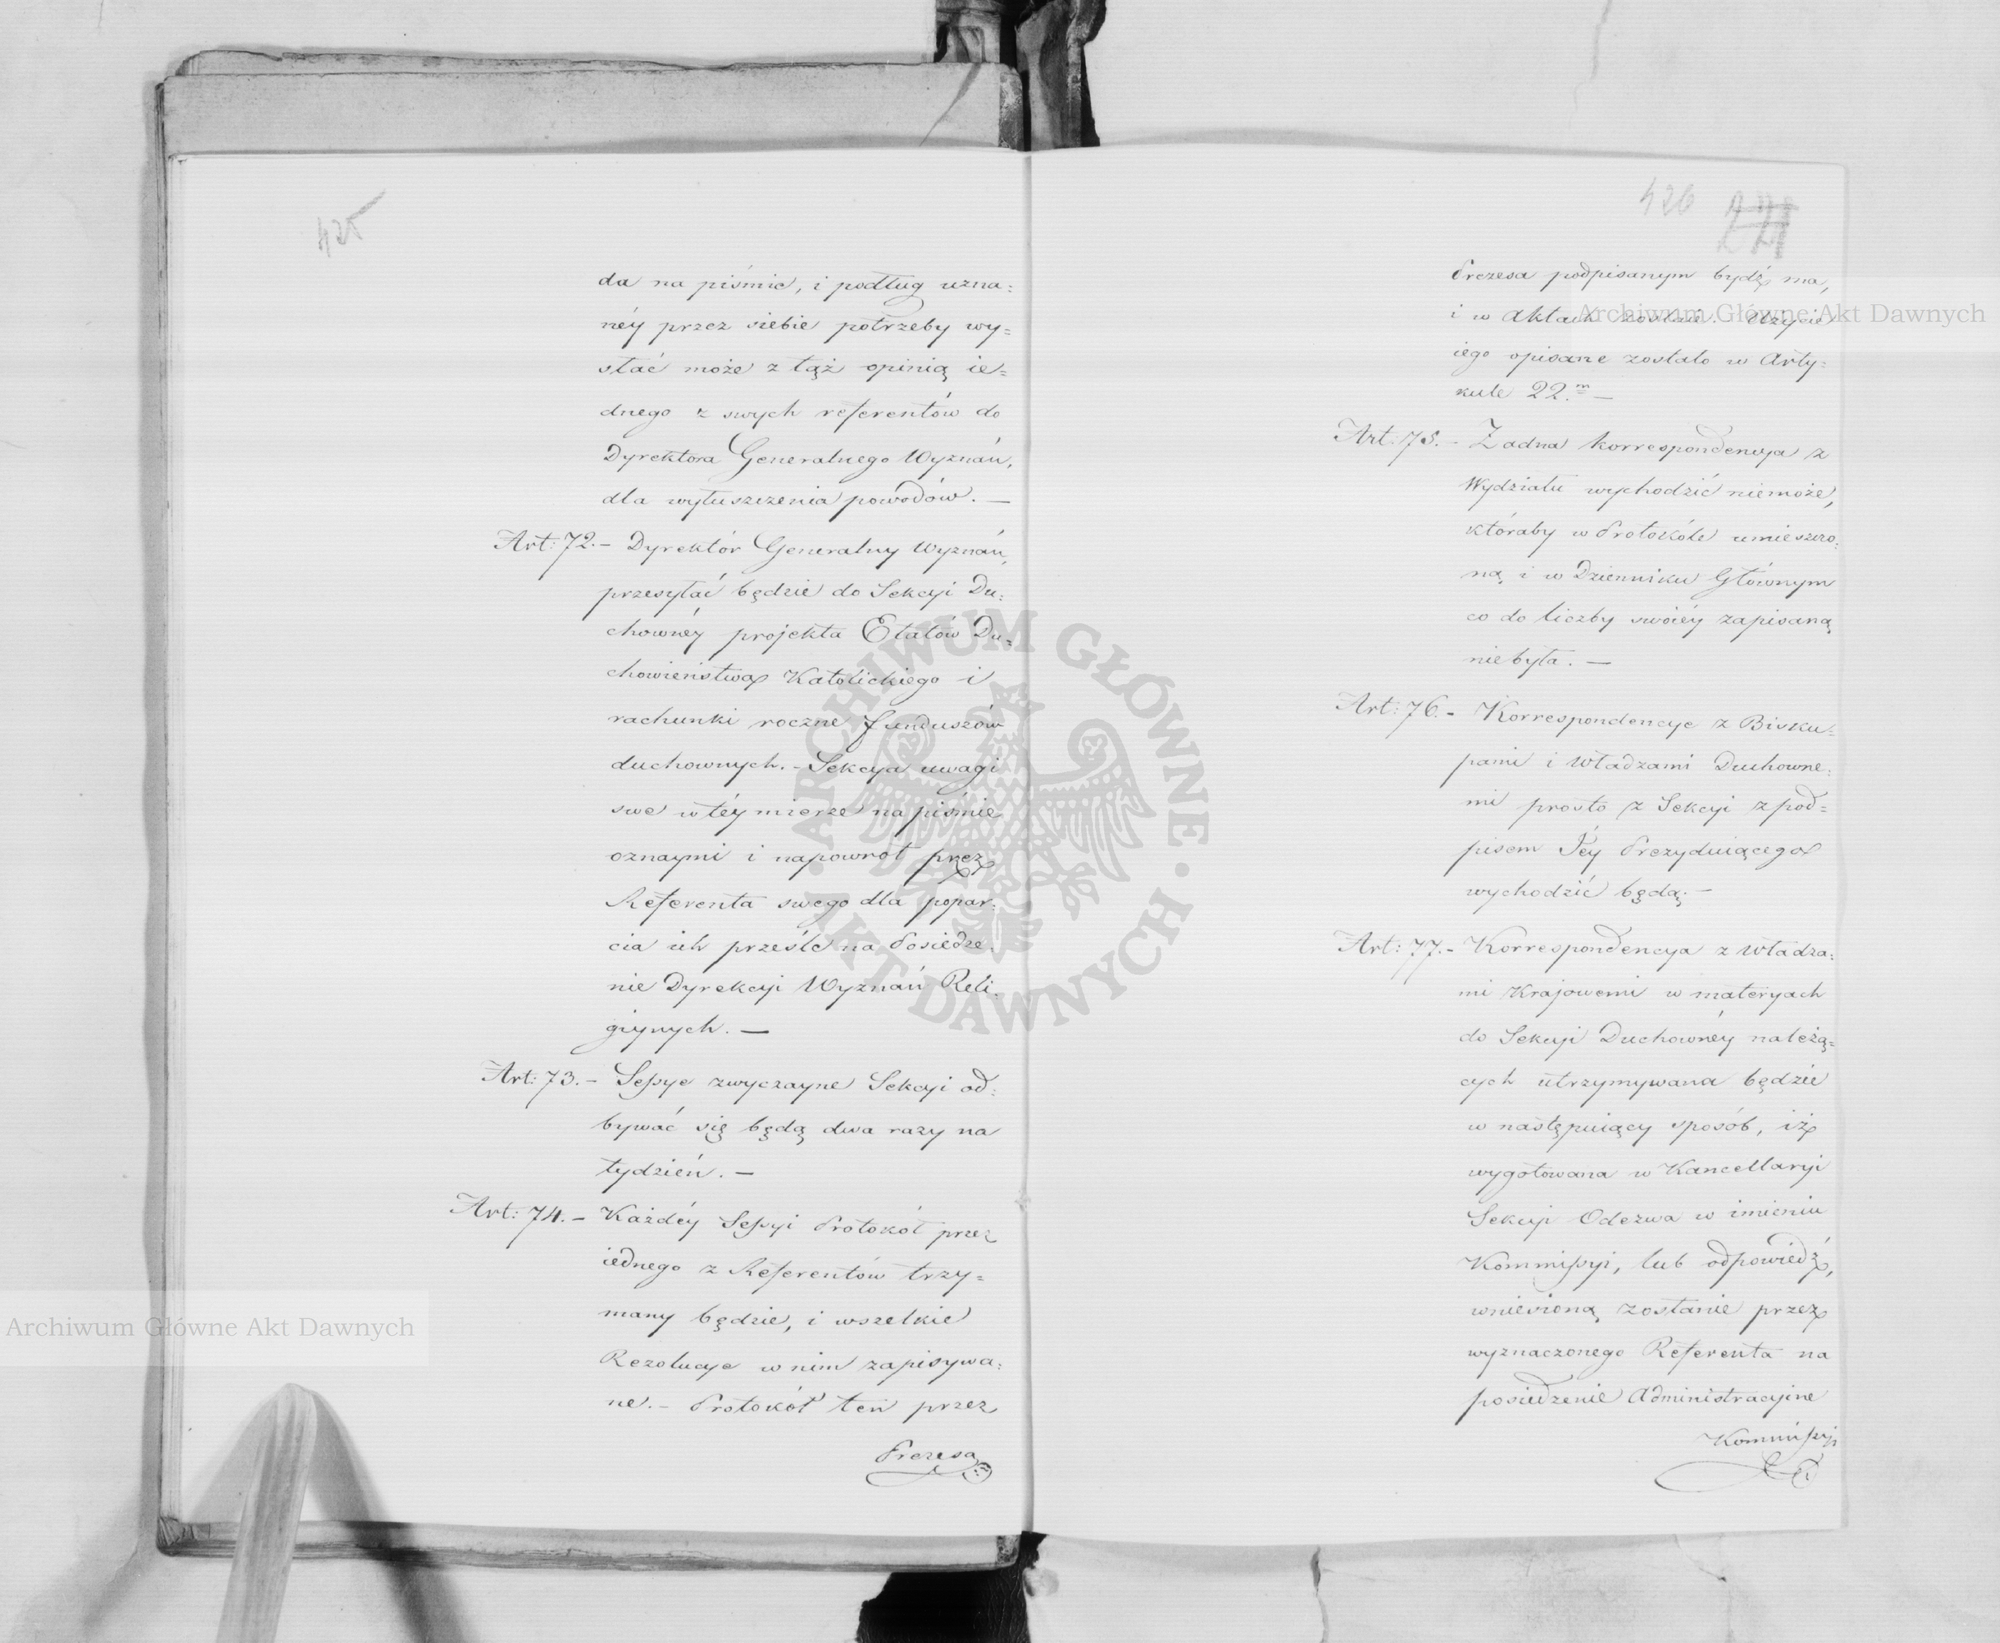 425
da na piśmie, i podług uzna:
néy przez siebie potrzeby wy=
słać może z tąż opinią ie=
dnego z swych referentów do
Dyrektora Generalnego Wyznań,
dla wyłuszczenia powodów. —
Art: 72. — Dyrektór Generalny Wyznań,
przesyłać będzie do Sekcyi Du:
chownéy projekta Etatów Du=
chowieństwa Katolickiego i
rachunki roczne funduszów
duchownych. — Sekcya uwagi
swe w téy mierze na piśmie
oznaymi i napowrót przez
Referenta swego dla popar:
cia ich prześle na Posiedze:
nie Dyrekcyi Wyznań Reli:
giynych. —
Art: 73. — Sessye zwyczayne Sekcyi od:
bywać się będą dwa razy na
tydzień. —
Art: 74. — Każdéy Sessyi Protokół przez
iednego z Referentów trzy=
many będzie, i wszelkie
Rezolucye w nim zapisywa:
ne. — Protokół ten przez
Prezesa
426
Prezesa podpisanym bydź ma,
i w Aktach zostanie. Użycie
iego opisane zostało w Arty:
kule 22.m —
Art: 75. — Żadna korrespondencya z
Wydziału wychodzić niemoże,
któraby w Protokóle umieszczo:
ną i w Dzienniku Głównym
co do liczby swoiéy zapisaną
niebyła. —
Art: 76. — Korrespondencye z Bisku:
pami i Władzami Duchowne:
mi prosto z Sekcyi z pod=
pisem Jéy Prezyduiącego
wychodzić będą. —
Art: 77. — Korrespondencya z Władza:
mi Krajowemi w materyach
do Sekcyi Duchownéy należą=
cych utrzymywana będzie
w następuiący sposób, iż
wygotowana w Kancellaryi
Sekcyi Odezwa w imieniu
Kommissyi, lub odpowiedź,
wniesioną zostanie przez
wyznaczonego Referenta na
posiedzenie Administracyine
Kommissyi
Archiwum Główne Akt Dawnych
ARCHIWUM GŁÓWNE · AKT DAWNYCH ·
Archiwum Główne Akt Dawnych